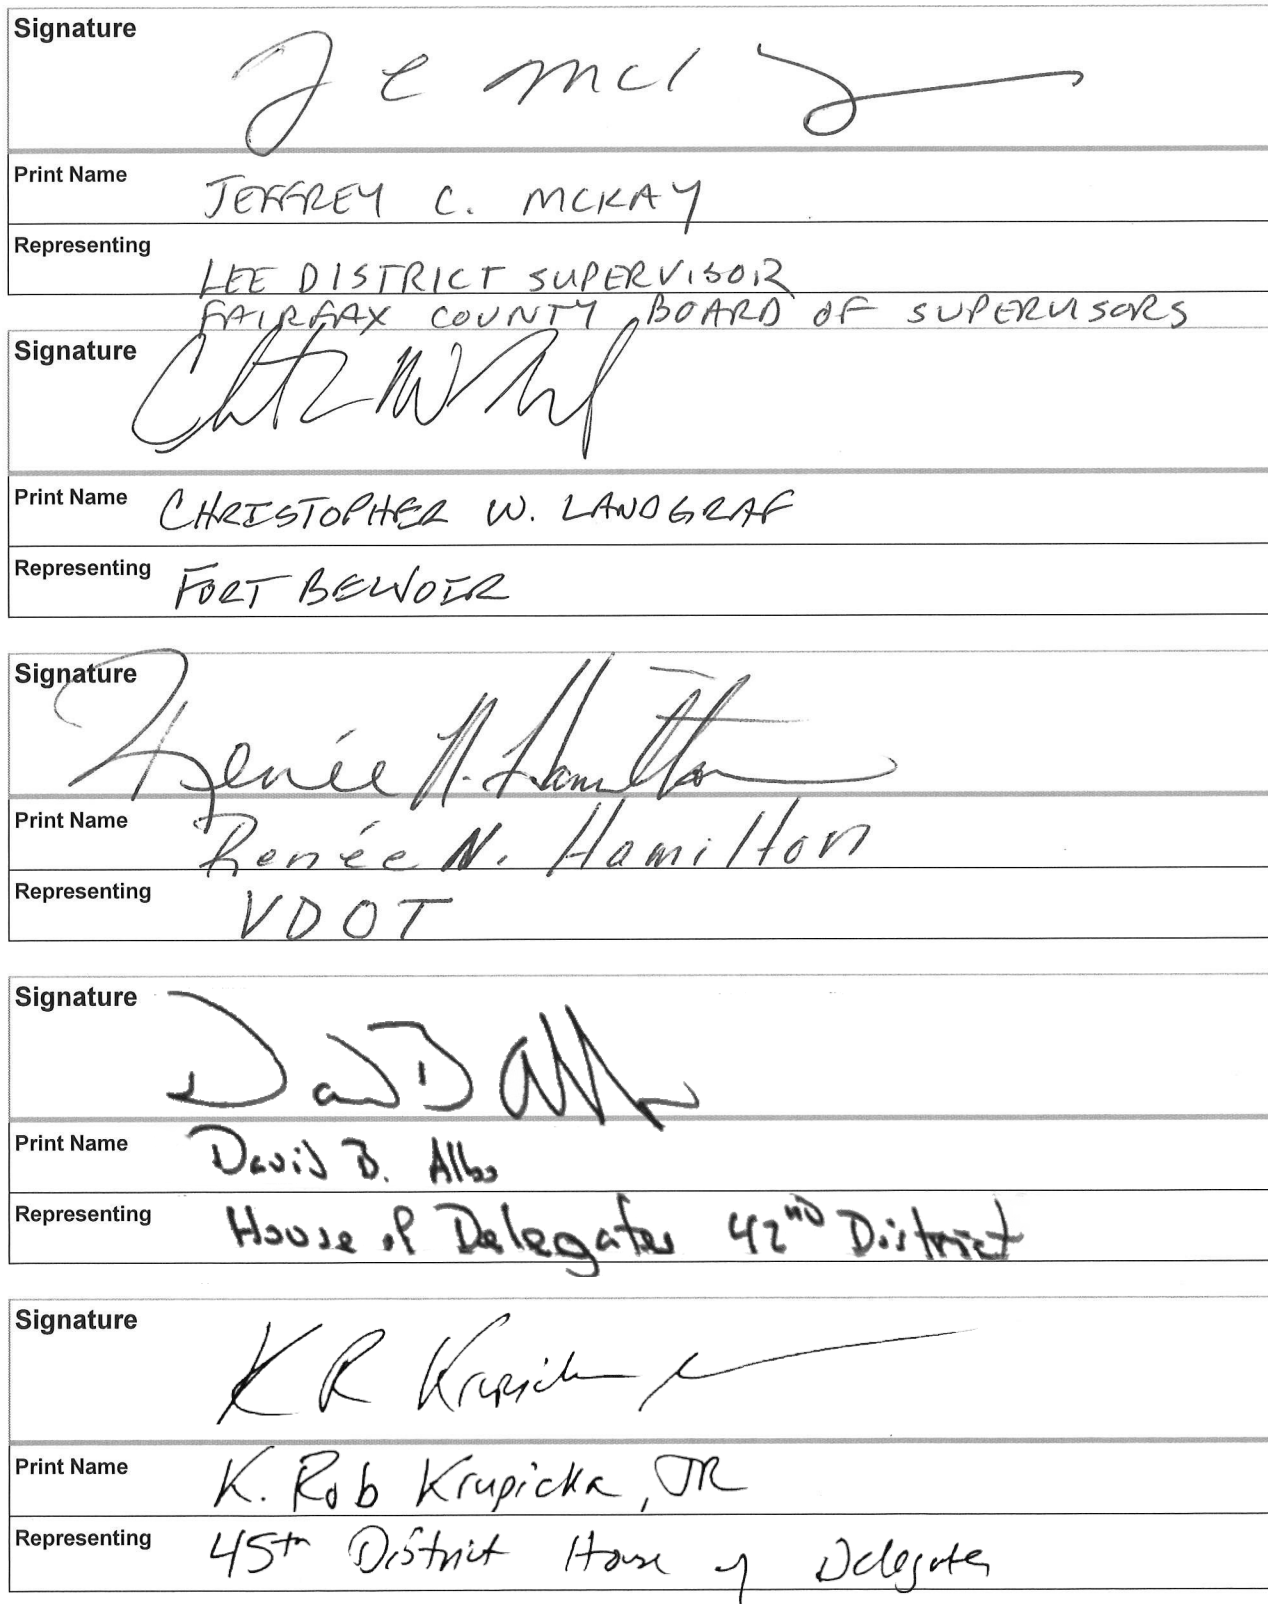 Signature
Print Name JEFFREY C. MCKAY
Representing LEE DISTRICT SUPERVISOR
FAIRFAX COUNTY BOARD OF SUPERVISORS
Signature
Print Name CHRISTOPHER W. LANDGRAF
Representing FORT BELVOIR
Signature Renée N. Hamilton
Print Name Renée N. Hamilton
Representing VDOT
Signature
Print Name David B. Albo
Representing House of Delegates 42ND District
Signature K R Krupicka
Print Name K. Rob Krupicka, JR
Representing 45th District House of Delegates